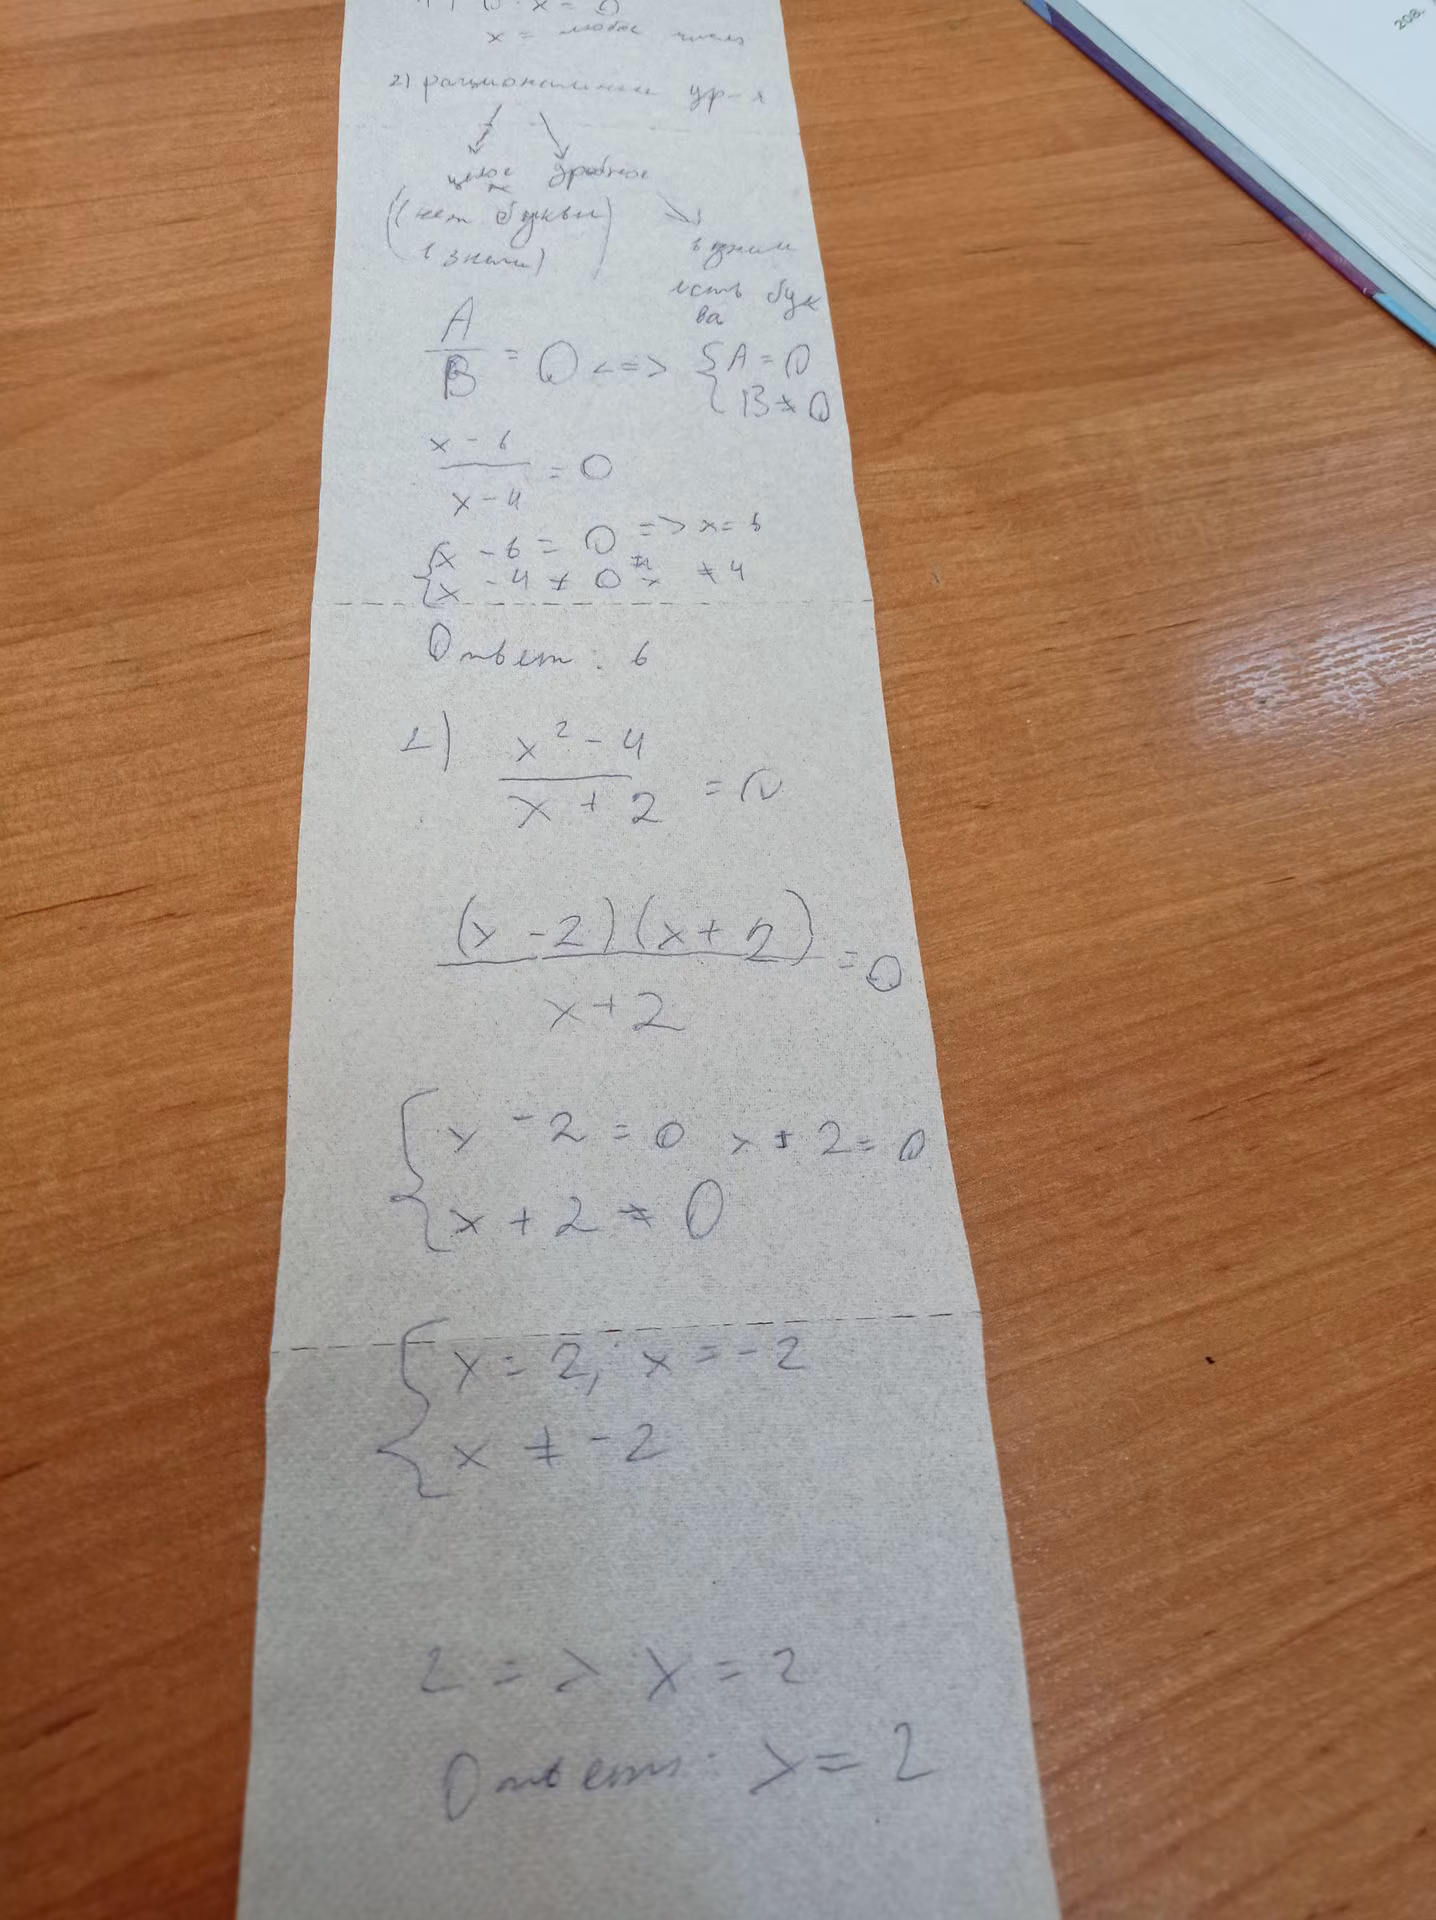 1) 0 · x = 0
x = любое число
2) рациональные ур-я
целое дробное
(нет буквы
в знам)
в знам
есть бук
ва
A/B = 0 <=> {A = 0
B ≠ 0
x - 6 / x - 4 = 0
{x - 6 = 0 => x = 6
x - 4 ≠ 0 x ≠ 4
Ответ: 6
1) x² - 4 / x + 2 = 0
(x - 2)(x + 2) / x + 2 = 0
{x - 2 = 0 x + 2 = 0
x + 2 ≠ 0
{x = 2; x = -2
x ≠ -2
2 => x = 2
Ответ: x = 2
208.